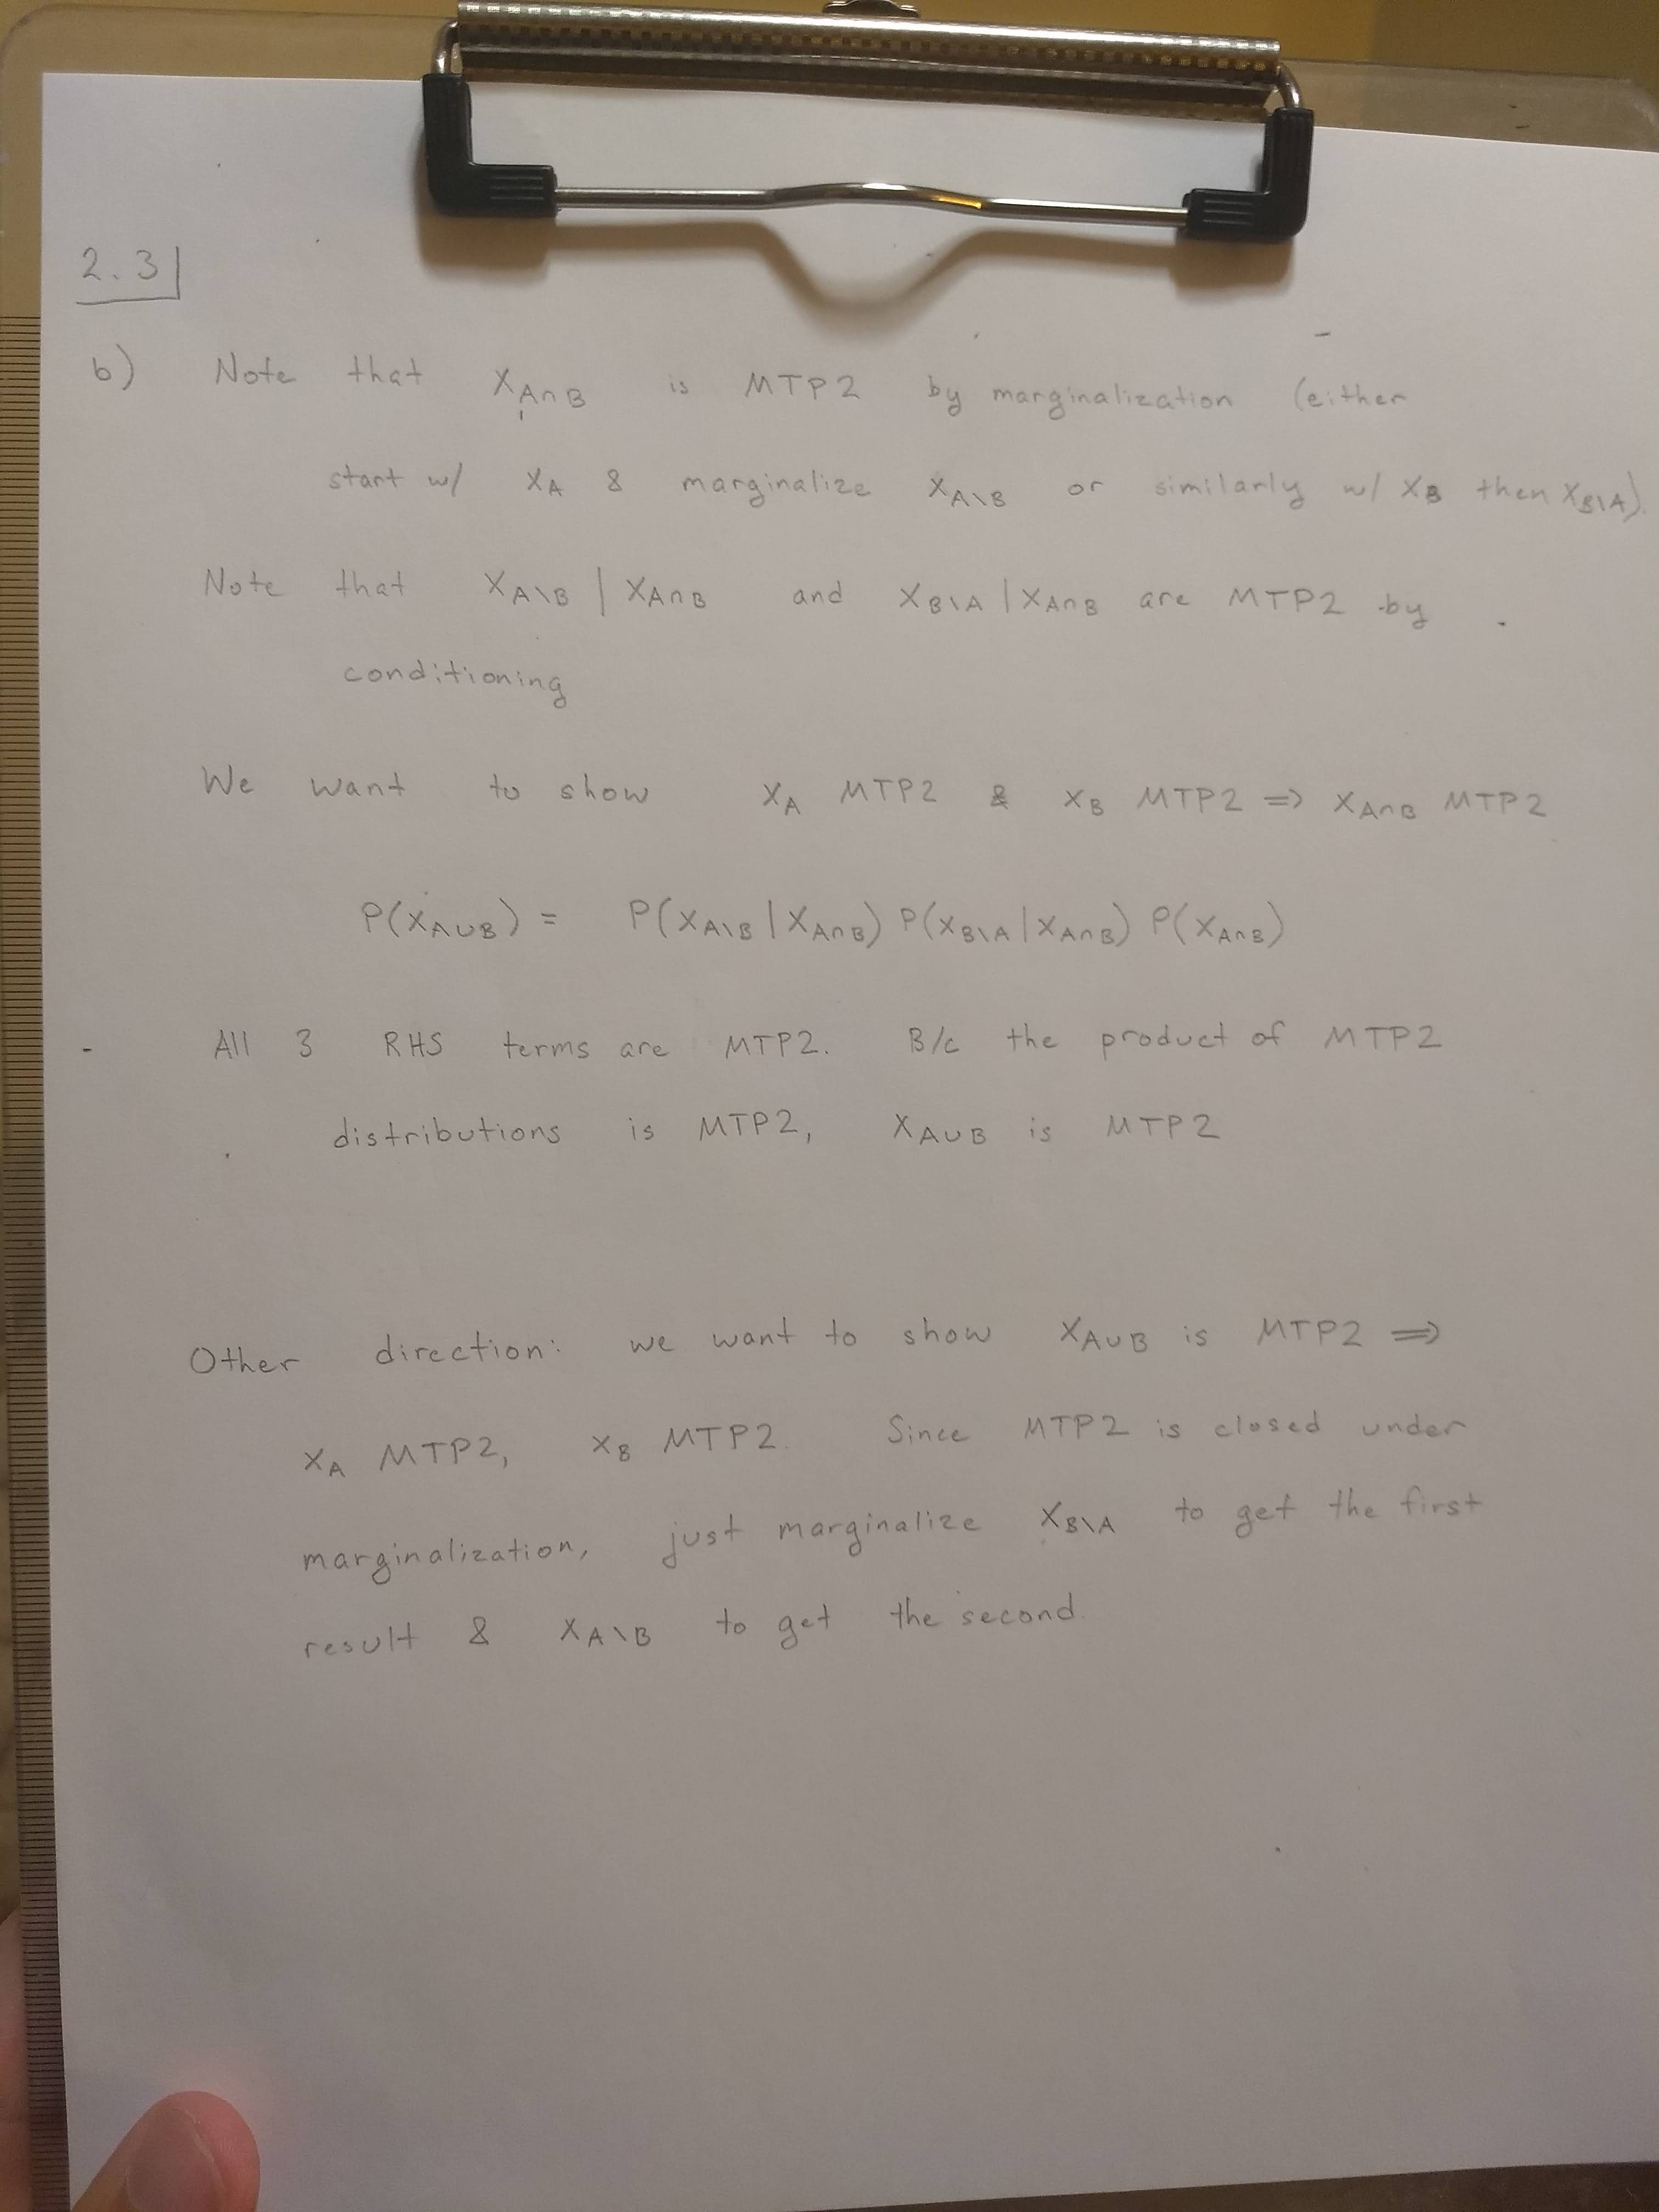 2.3
b) Note that X_{A∩B} is MTP2 by marginalization (either
start w/ X_A & marginalize X_{A\B} or similarly w/ X_B then X_{B\A}).
Note that X_{A\B} | X_{A∩B} and X_{B\A} | X_{A∩B} are MTP2 by
conditioning
We want to show X_A MTP2 & X_B MTP2 ⇒ X_{A∩B} MTP2
P(X_{A∪B}) = P(X_{A\B} | X_{A∩B}) P(X_{B\A} | X_{A∩B}) P(X_{A∩B})
All 3 RHS terms are MTP2. B/c the product of MTP2
distributions is MTP2, X_{A∪B} is MTP2
Other direction: we want to show X_{A∪B} is MTP2 ⇒
X_A MTP2, X_B MTP2. Since MTP2 is closed under
marginalization, just marginalize X_{B\A} to get the first
result & X_{A\B} to get the second.